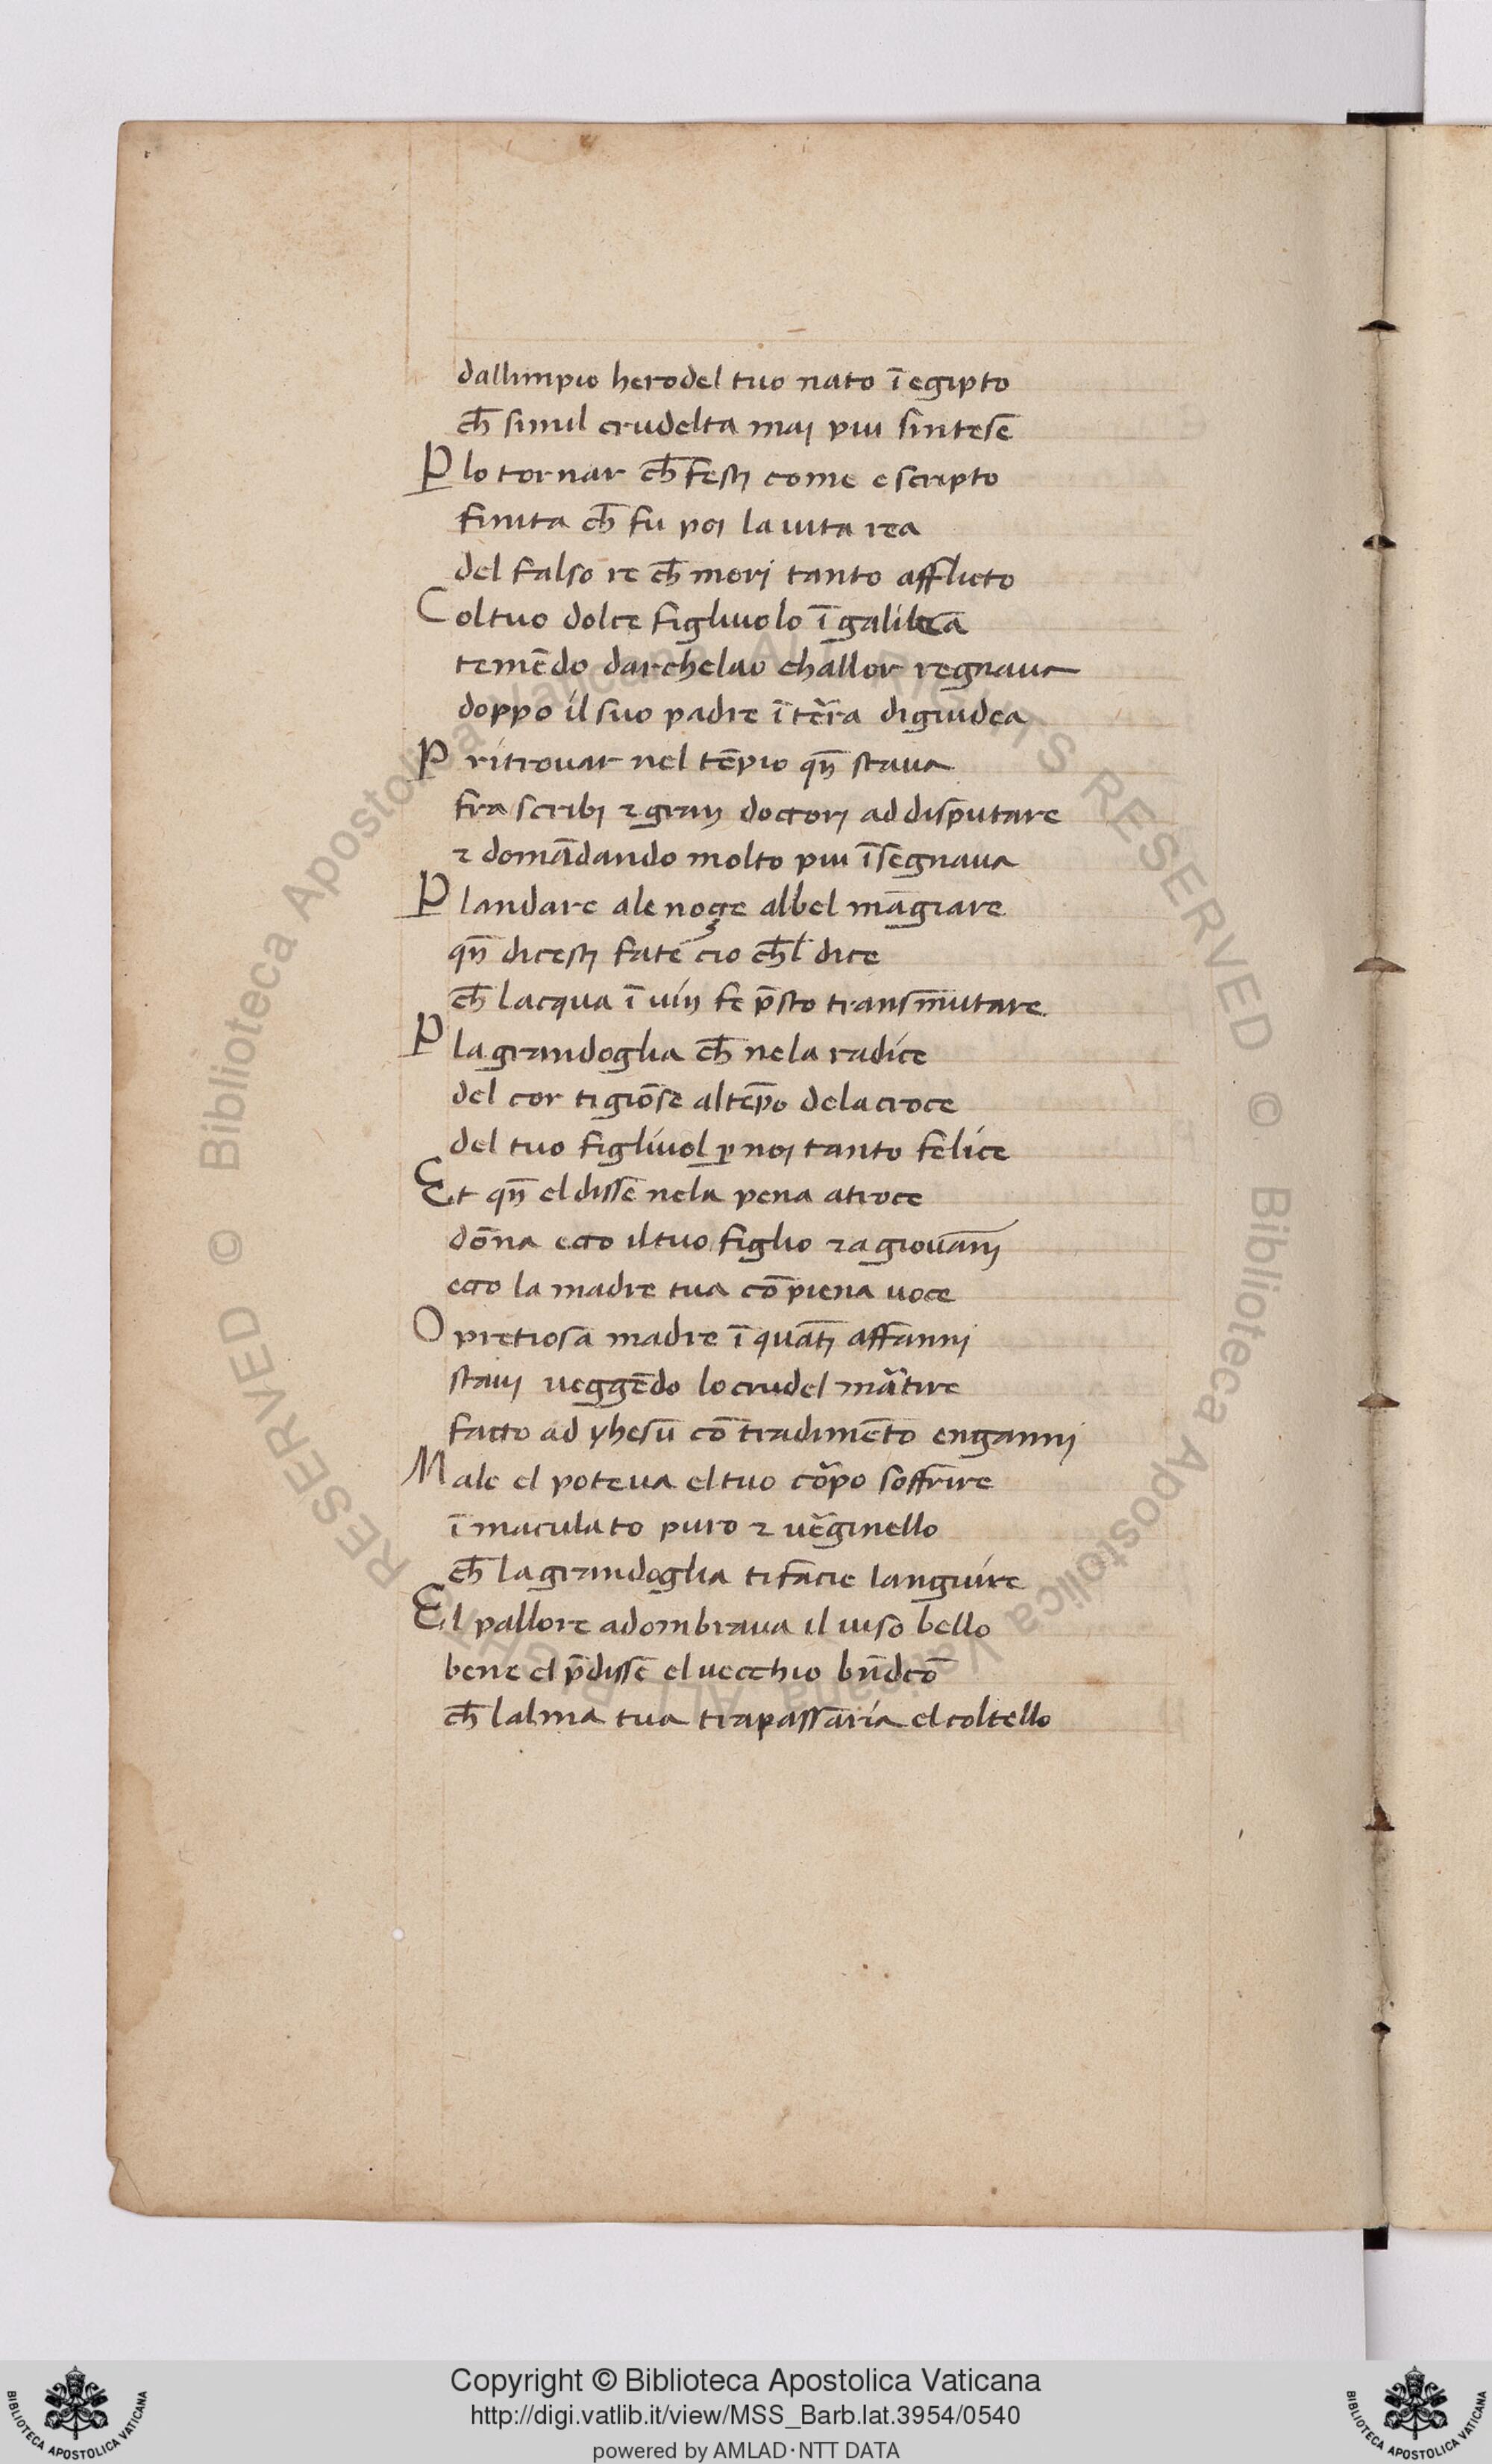 dallimpio herodel tuo nato ī egipto
ch̄ simil crudelta maj piu sintesē
P̱ lo tornar ch̄ festj come e scripto
finita ch̄ fu poj la uita rea
del falso re ch̄ morj tanto afflicto
Col tuo dolce figliuolo ī galilea
temēdo darchelao challor regnaua
doppo il suo padre ī tẽra digiudea
P̱ ritrouar nel tēpio qn̄ staua
fra scribj ⁊ granj doctorj ad disputare
⁊ domādando molto piu īsegnaua
P̱ landare ale noçe albel māgiare
qn̄ dicestj fate cio ch̄l dice
ch̄ lacqua ī uin fe p̄sto transm̄utare
P̱ la grandoglia ch̄ nela radice
del cor ti giōse al tēpo dela croce
del tuo figliuol ꝑ noj tanto felice
Et qn̄ el dissē nela pena atroce
dōna ecco il tuo figlio ⁊ a giouānj
ecco la madre tua cō piena uoce
O pretiosa madre ī quātj affannj
stauj ueggēdo lo crudel mãtire
facto ad yhesū cō tradimēto engannj
Male el poteua el tuo cõpo soffrire
īmaculato puro ⁊ uẽginello
ch̄ la grandoglia ti facie languire
El pallore adombraua il uiso bello
bene el p̄dissē el uecchio bn̄dcō
ch̄ lalma tua trapassaria el coltello
Copyright © Biblioteca Apostolica Vaticana
http://digi.vatlib.it/view/MSS_Barb.lat.3954/0540
powered by AMLAD·NTT DATA
BIBLIOTECA APOSTOLICA VATICANA
BIBLIOTECA APOSTOLICA VATICANA
© Biblioteca Apostolica Vaticana ALL RIGHTS RESERVED © Biblioteca Apostolica Vaticana ALL RIGHTS RESERVED